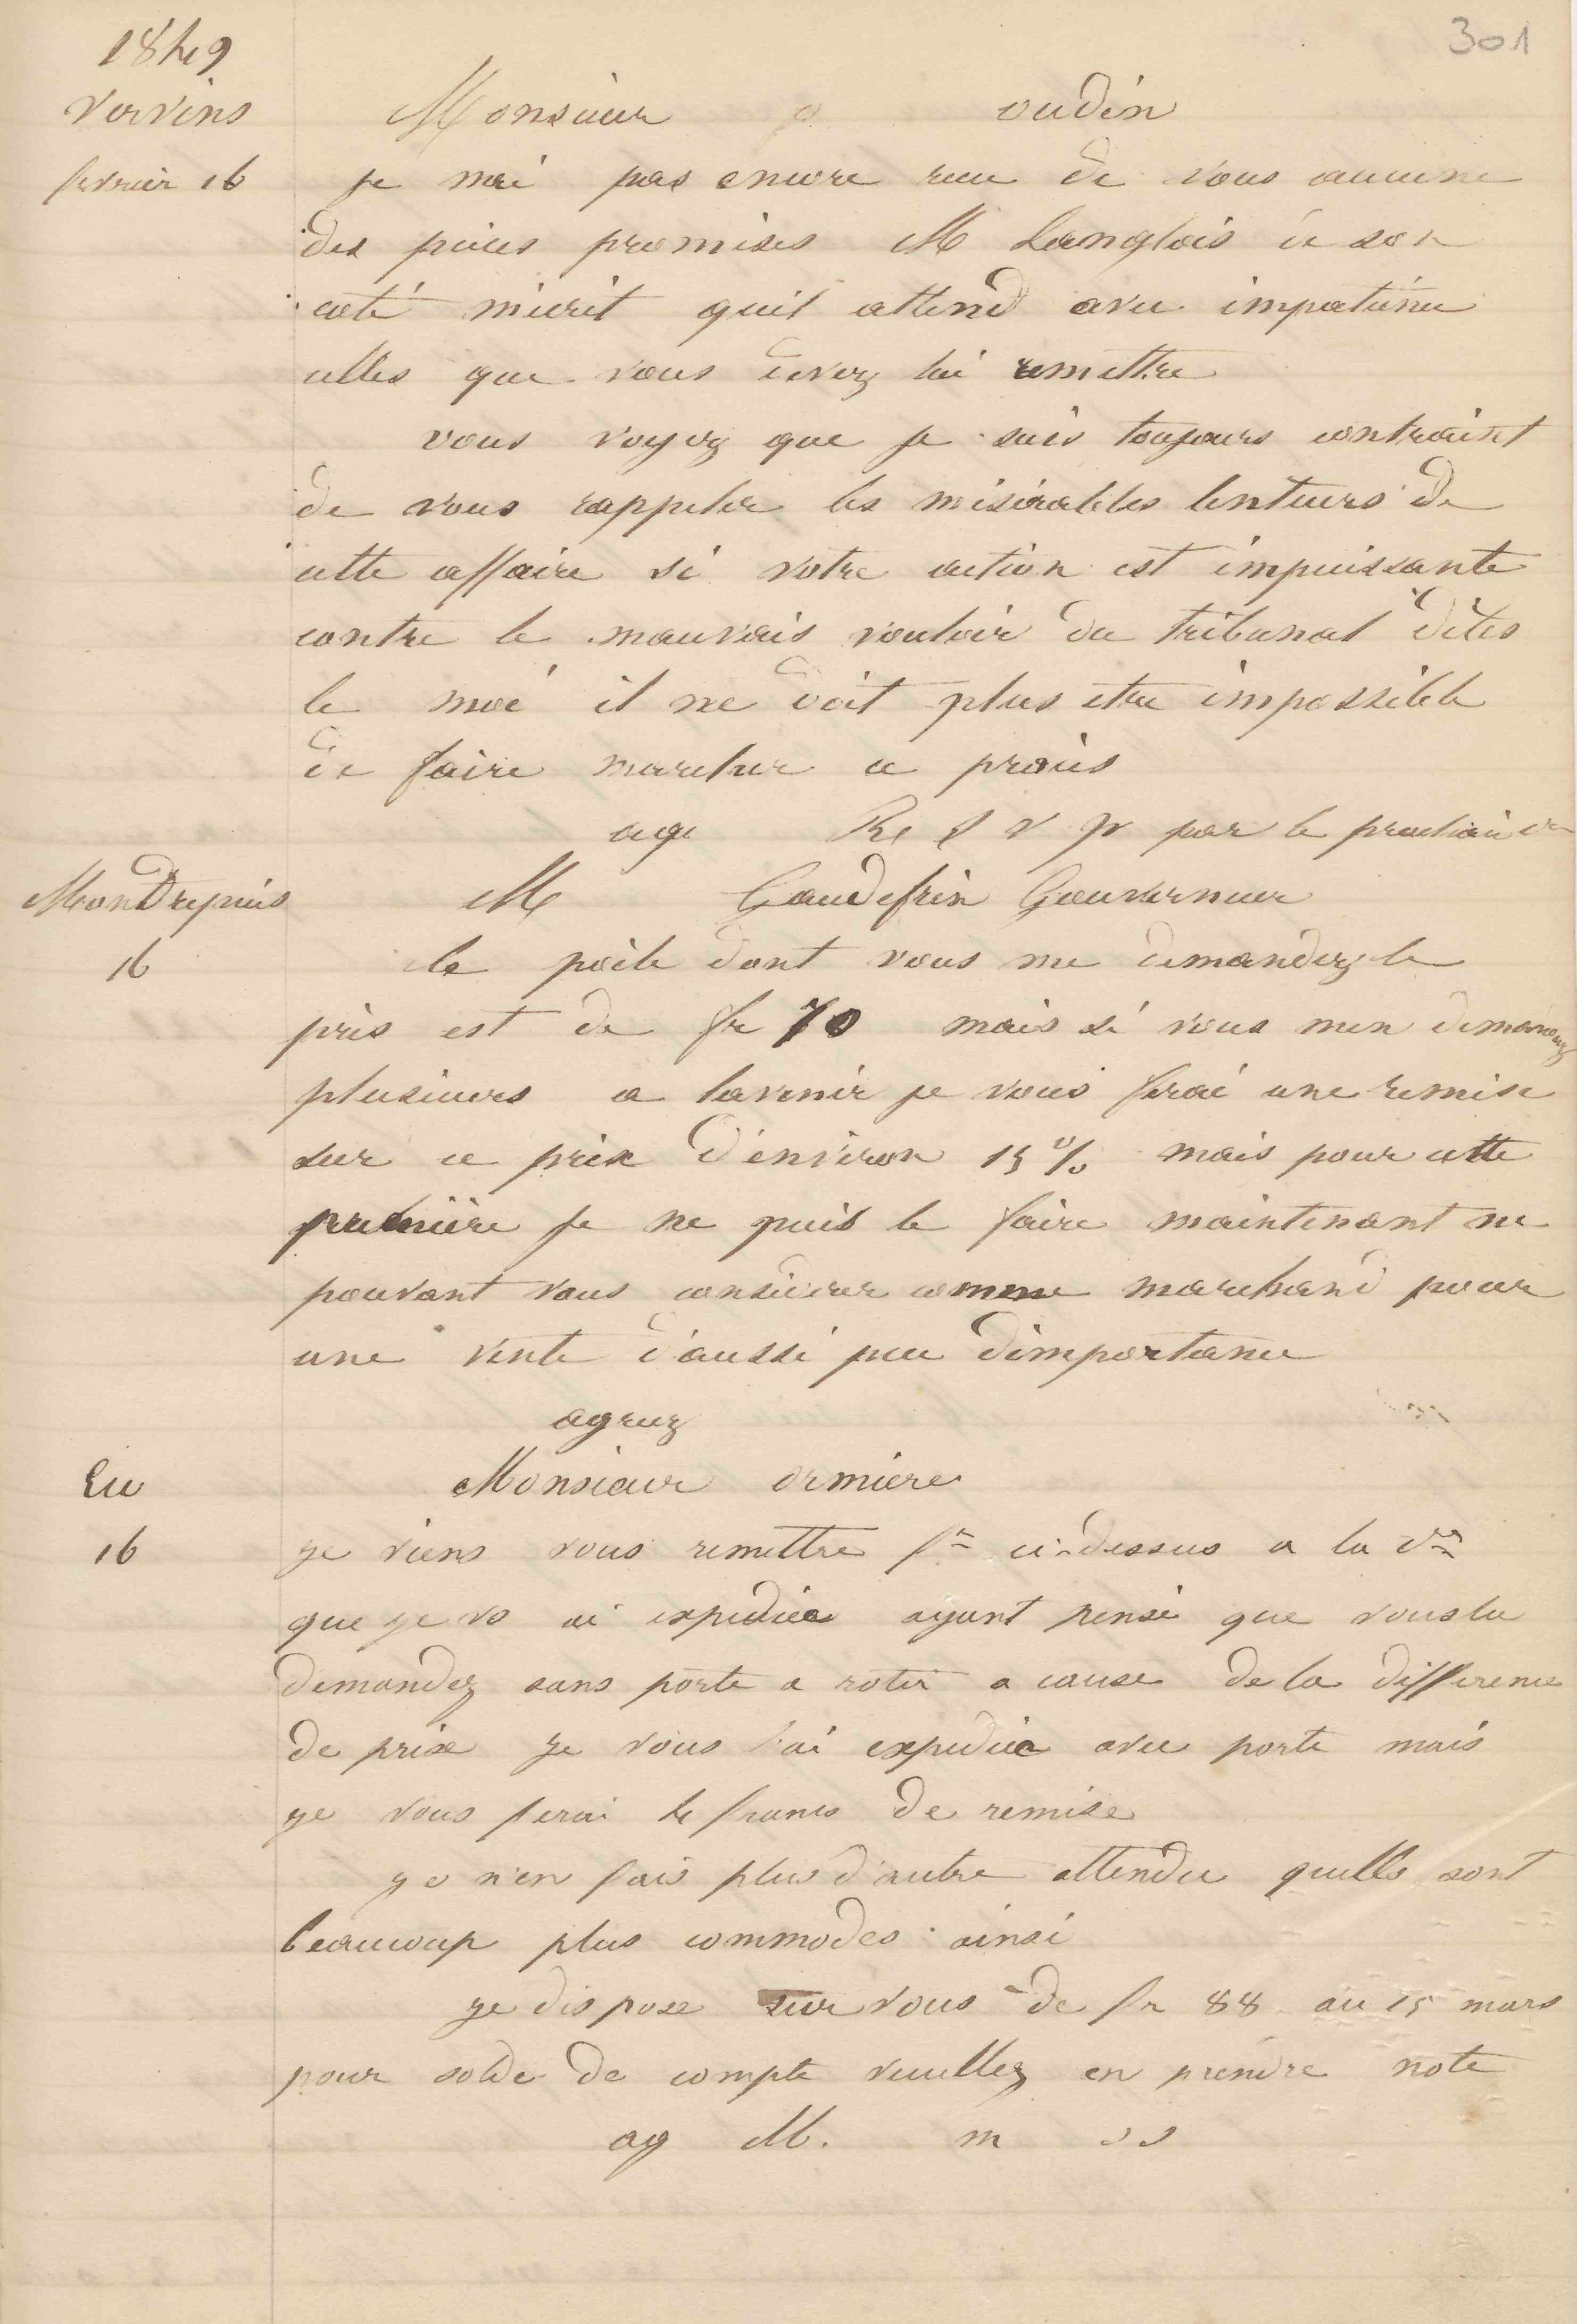 301
1849
Vervins
fevrier 16
Monsieur oudin
je nai pas encore recu de vous aucune
des pieces promises M Langlois de son
coté mecrit quil attend avec impatience
celles que vous devez lui remettre
vous voyez que je suis toujours contraint
de vous rappeler les misérables lenteurs de
cette affaire si votre action est impuissante
contre le mauvais vouloir du tribunal dites
le moi il ne doit plus etre impossible
de faire marcher ce procès
agr R S V P par le prochain
Mondrepuis
16
M Gaudefrin Gouverneur
le poele dont vous me demandez le
prix est de fr 70 mais si vous men demandez
plusieurs a lavenir je vous ferai une remise
sur ce prix d'environ 15 % mais pour cette
première je ne puis le faire maintenant ne
pouvant vous considerer comme marchand pour
une vente d'aussi peu dimportance
agreez
Eu
16
Monsieur ormiere
je viens vous remettre fre ci-dessus a la vre
que je vs ai expediée ayant pensé que vous la
demandez sans porte a rotir a cause de la difference
de prix je vous l'ai expediée avec porte mais
je vous ferai 4 francs de remise
je n'en fais plus d'autre attendu quelles sont
beaucoup plus commodes ainsi
je dispose sur vous de fr 88 au 15 mars
pour solde de compte veuillez en prendre note
ag M. m ss